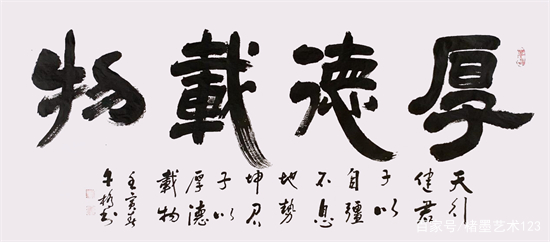 厚德載物
天行
健君
子以
自彊
不息
地勢
坤君
子以
厚德
載物
壬寅春
百家号/楮墨艺术123